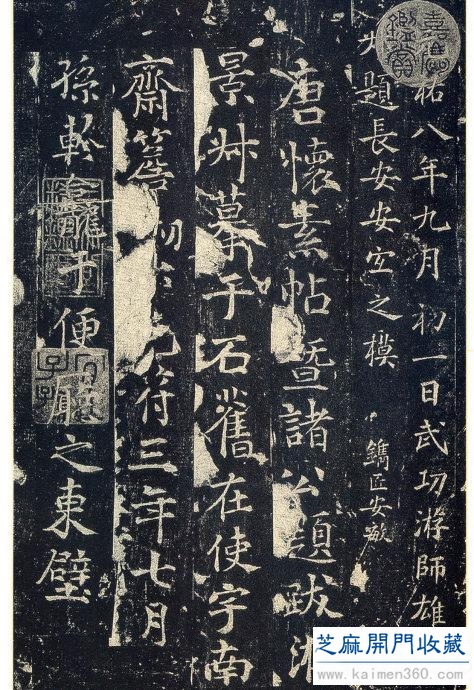 祐八年九月初一日武功游師雄
題長安安宜之模 鐫匠安敏
唐懷素帖暨諸公題跋
景艸摹于石舊在使宇南
齋簷 符三年七月
孫軫 于便廳之東壁
芝麻開門收藏
www.kaimen360.com